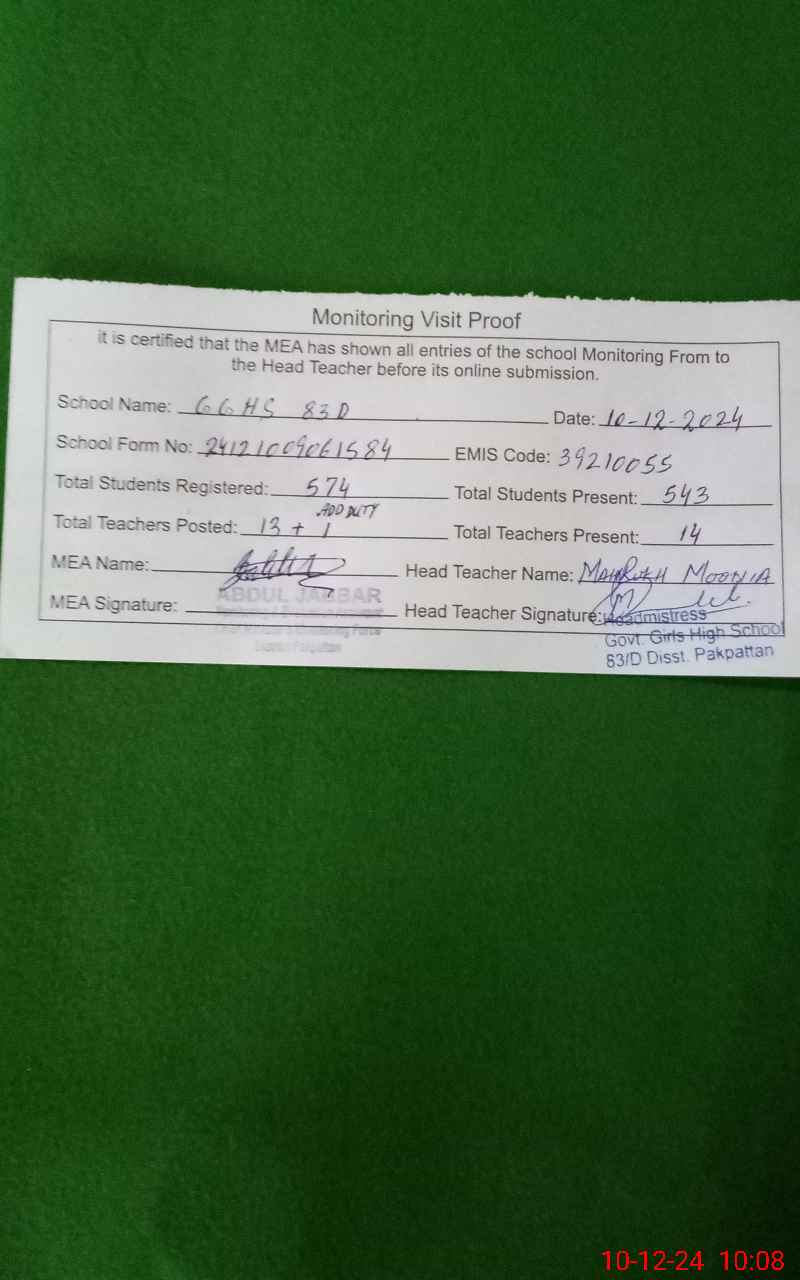 Monitoring Visit Proof
it is certified that the MEA has shown all entries of the school Monitoring From to
the Head Teacher before its online submission.
School Name: GGHS 83D Date: 10-12-2024
School Form No: 24121009061584 EMIS Code: 39210055
Total Students Registered: 574 Total Students Present: 543
ADD DUTY
Total Teachers Posted: 13 + 1 Total Teachers Present: 14
MEA Name: Head Teacher Name: MAHRUKH MOONIA
ABDUL JABBAR
MEA Signature: Head Teacher Signature:
Headmistress
Govt. Girls High School
83/D Disst. Pakpattan
10-12-24 10:08